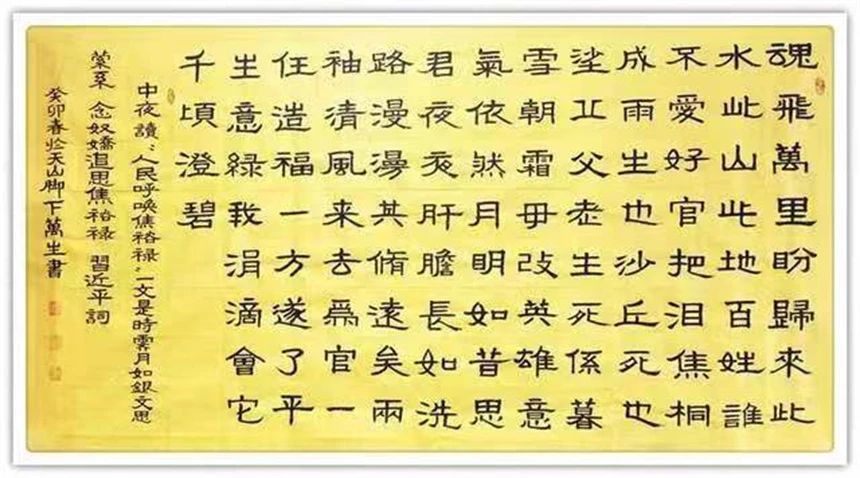 魂飛萬里盼歸來此
水此山此地百姓誰
不愛好官把泪焦桐
成雨生也沙丘死也
丘父老生死係暮
雪朝霜毋改英雄意
氣依然月明如昔思
君夜夜肝膽長如洗
路漫漫其脩遠矣兩
袖清風来去爲官一
任造福一方遂了平
生意綠我涓滴會它
千頃澄碧
中夜讀"人民呼唤焦裕禄"一文是時霽月如銀文思
縈系 念奴嬌追思焦裕禄 習近平詞
癸卯春於天山脚下萬生書